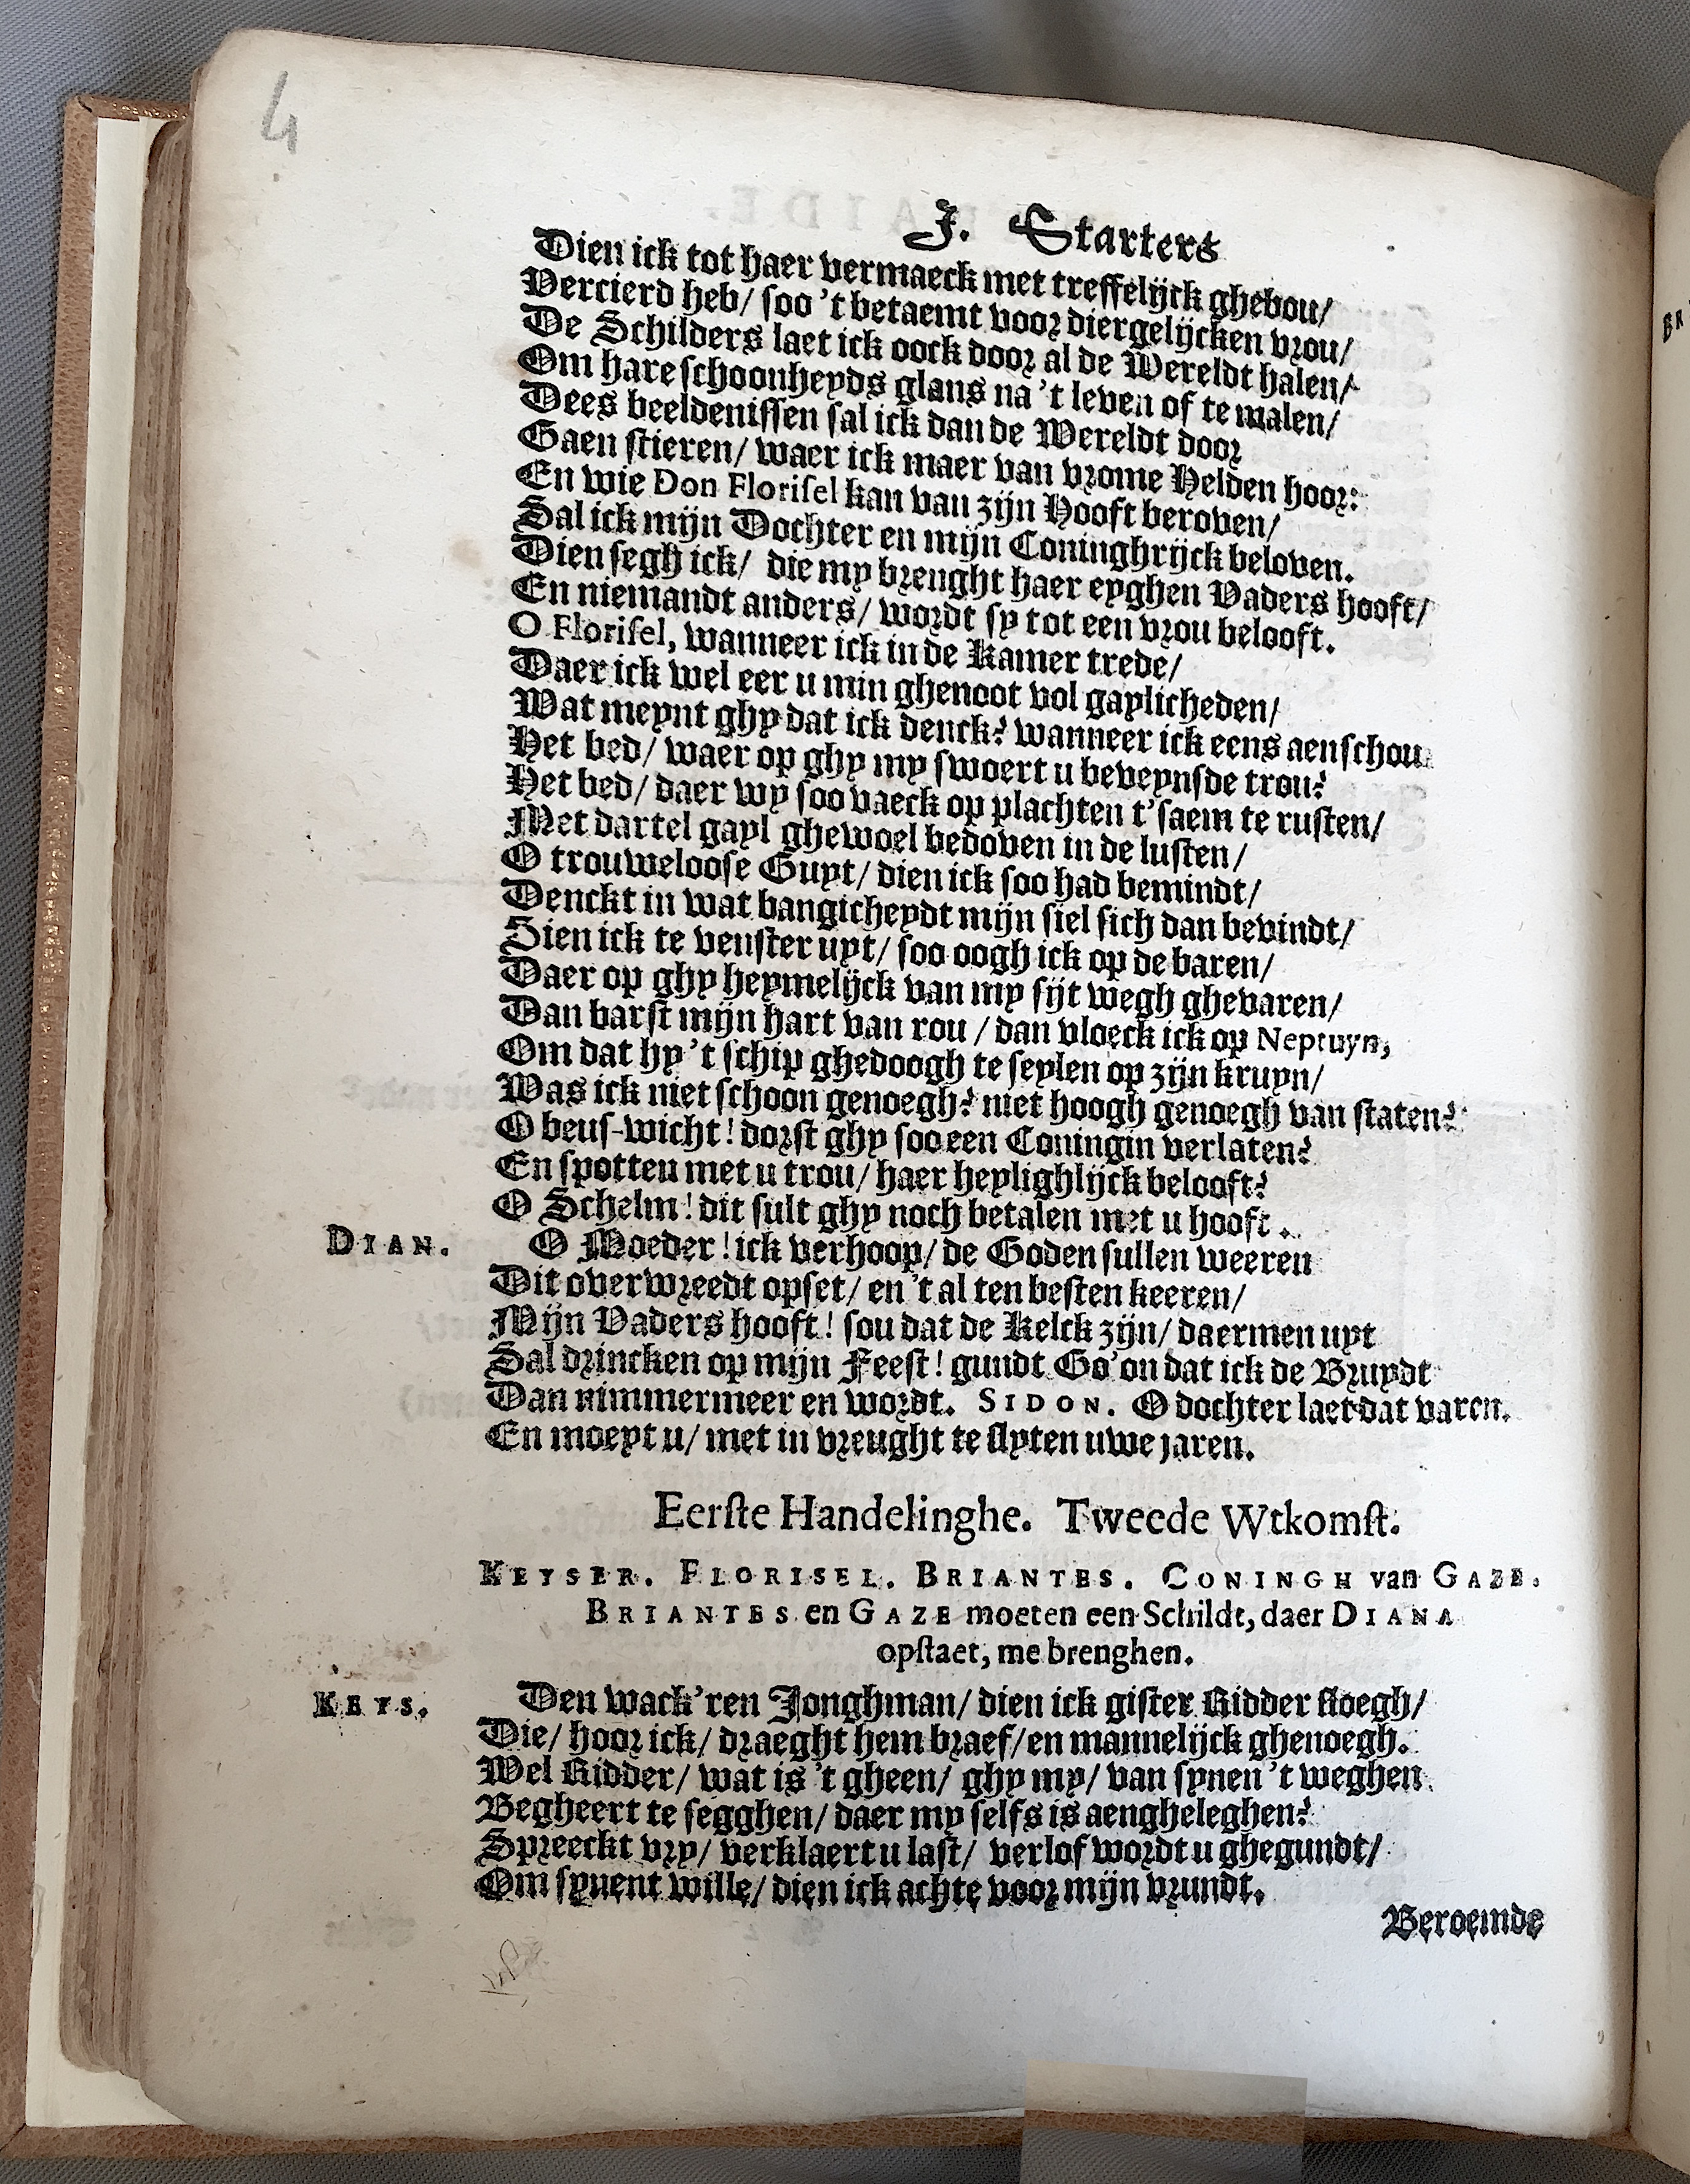 4
J. Starters
Dien ick tot haer vermaeck met treffelijck ghebou/
Vercierd heb/ soo 't betaemt voor diergelijcken vrou/
De Schilders laet ick oock door al de Wereldt halen/
Om hare schoonheyds glans na 't leven of te malen/
Dees beeldenissen sal ick dan de Wereldt door
Gaen stieren/ waer ick maer van vrome Helden hoor:
En wie Don Florisel kan van zijn Hooft beroven/
Sal ick mijn Dochter en mijn Coninghrijck beloven.
Dien segh ick/ die my brenght haer eyghen Vaders hooft/
En niemandt anders/ wordt sy tot een vrou belooft.
O Florisel, wanneer ick in de Kamer trede/
Daer ick wel eer u min ghenoot vol gaylicheden/
Wat meynt ghy dat ick denck? wanneer ick eens aenschou
Het bed/ waer op ghy my swoert u beveynsde trou?
Het bed/ daer wy soo vaeck op plachten t'saem te rusten/
Met dartel gayl ghewoel bedoven in de lusten/
O trouweloose Guyt/ dien ick soo had bemindt/
Denckt in wat bangicheydt mijn siel sich dan bevindt/
Sien ick te venster uyt/ soo oogh ick op de baren/
Daer op ghy heymelijck van my sijt wegh ghevaren/
Dan barst mijn hart van rou / dan vloeck ick op Neptuyn,
Om dat hy 't schip ghedoogh te seylen op zijn kruyn/
Was ick niet schoon genoegh? niet hoogh genoegh van staten?
O beus-wicht! dorst ghy soo een Coningin verlaten?
En spotten met u trou/ haer heylighlijck belooft?
O Schelm! dit sult ghy noch betalen met u hooft.
DIAN. O Moeder! ick verhoop/ de Goden sullen weeren
Dit overwreedt opset/ en 't al ten besten keeren/
Mijn Vaders hooft! sou dat de Kelck zijn/ daermen uyt
Sal drincken op mijn Feest! gundt Go'on dat ick de Bruydt
Dan nimmermeer en wordt. SIDON. O dochter laet dat varen.
En moeyt u/ met in vreught te slyten uwe jaren.
Eerste Handelinghe. Tweede Wtkomst.
KEYSER. FLORISEL. BRIANTES. CONINGH van GAZE.
BRIANTES en GAZE moeten een Schildt, daer DIANA
opstaet, me brenghen.
KEYS. Den wack'ren Jonghman/ dien ick gister Ridder sloegh/
Die/ hoor ick/ draeght hem braef/ en mannelijck ghenoegh.
Wel Ridder/ wat is 't gheen/ ghy my/ van synen 't weghen
Begheert te segghen/ daer my selfs is aengheleghen?
Spreeckt vry/ verklaert u last/ verlof wordt u ghegundt/
Om synent wille/ dien ick achte voor mijn vrundt.
Beroemde